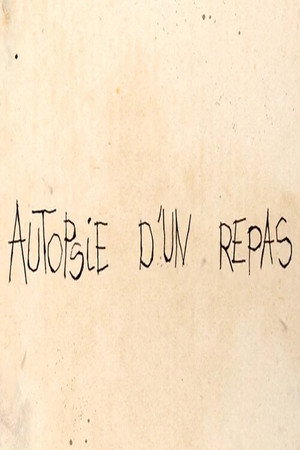 AUTOPSIE D'UN REPAS